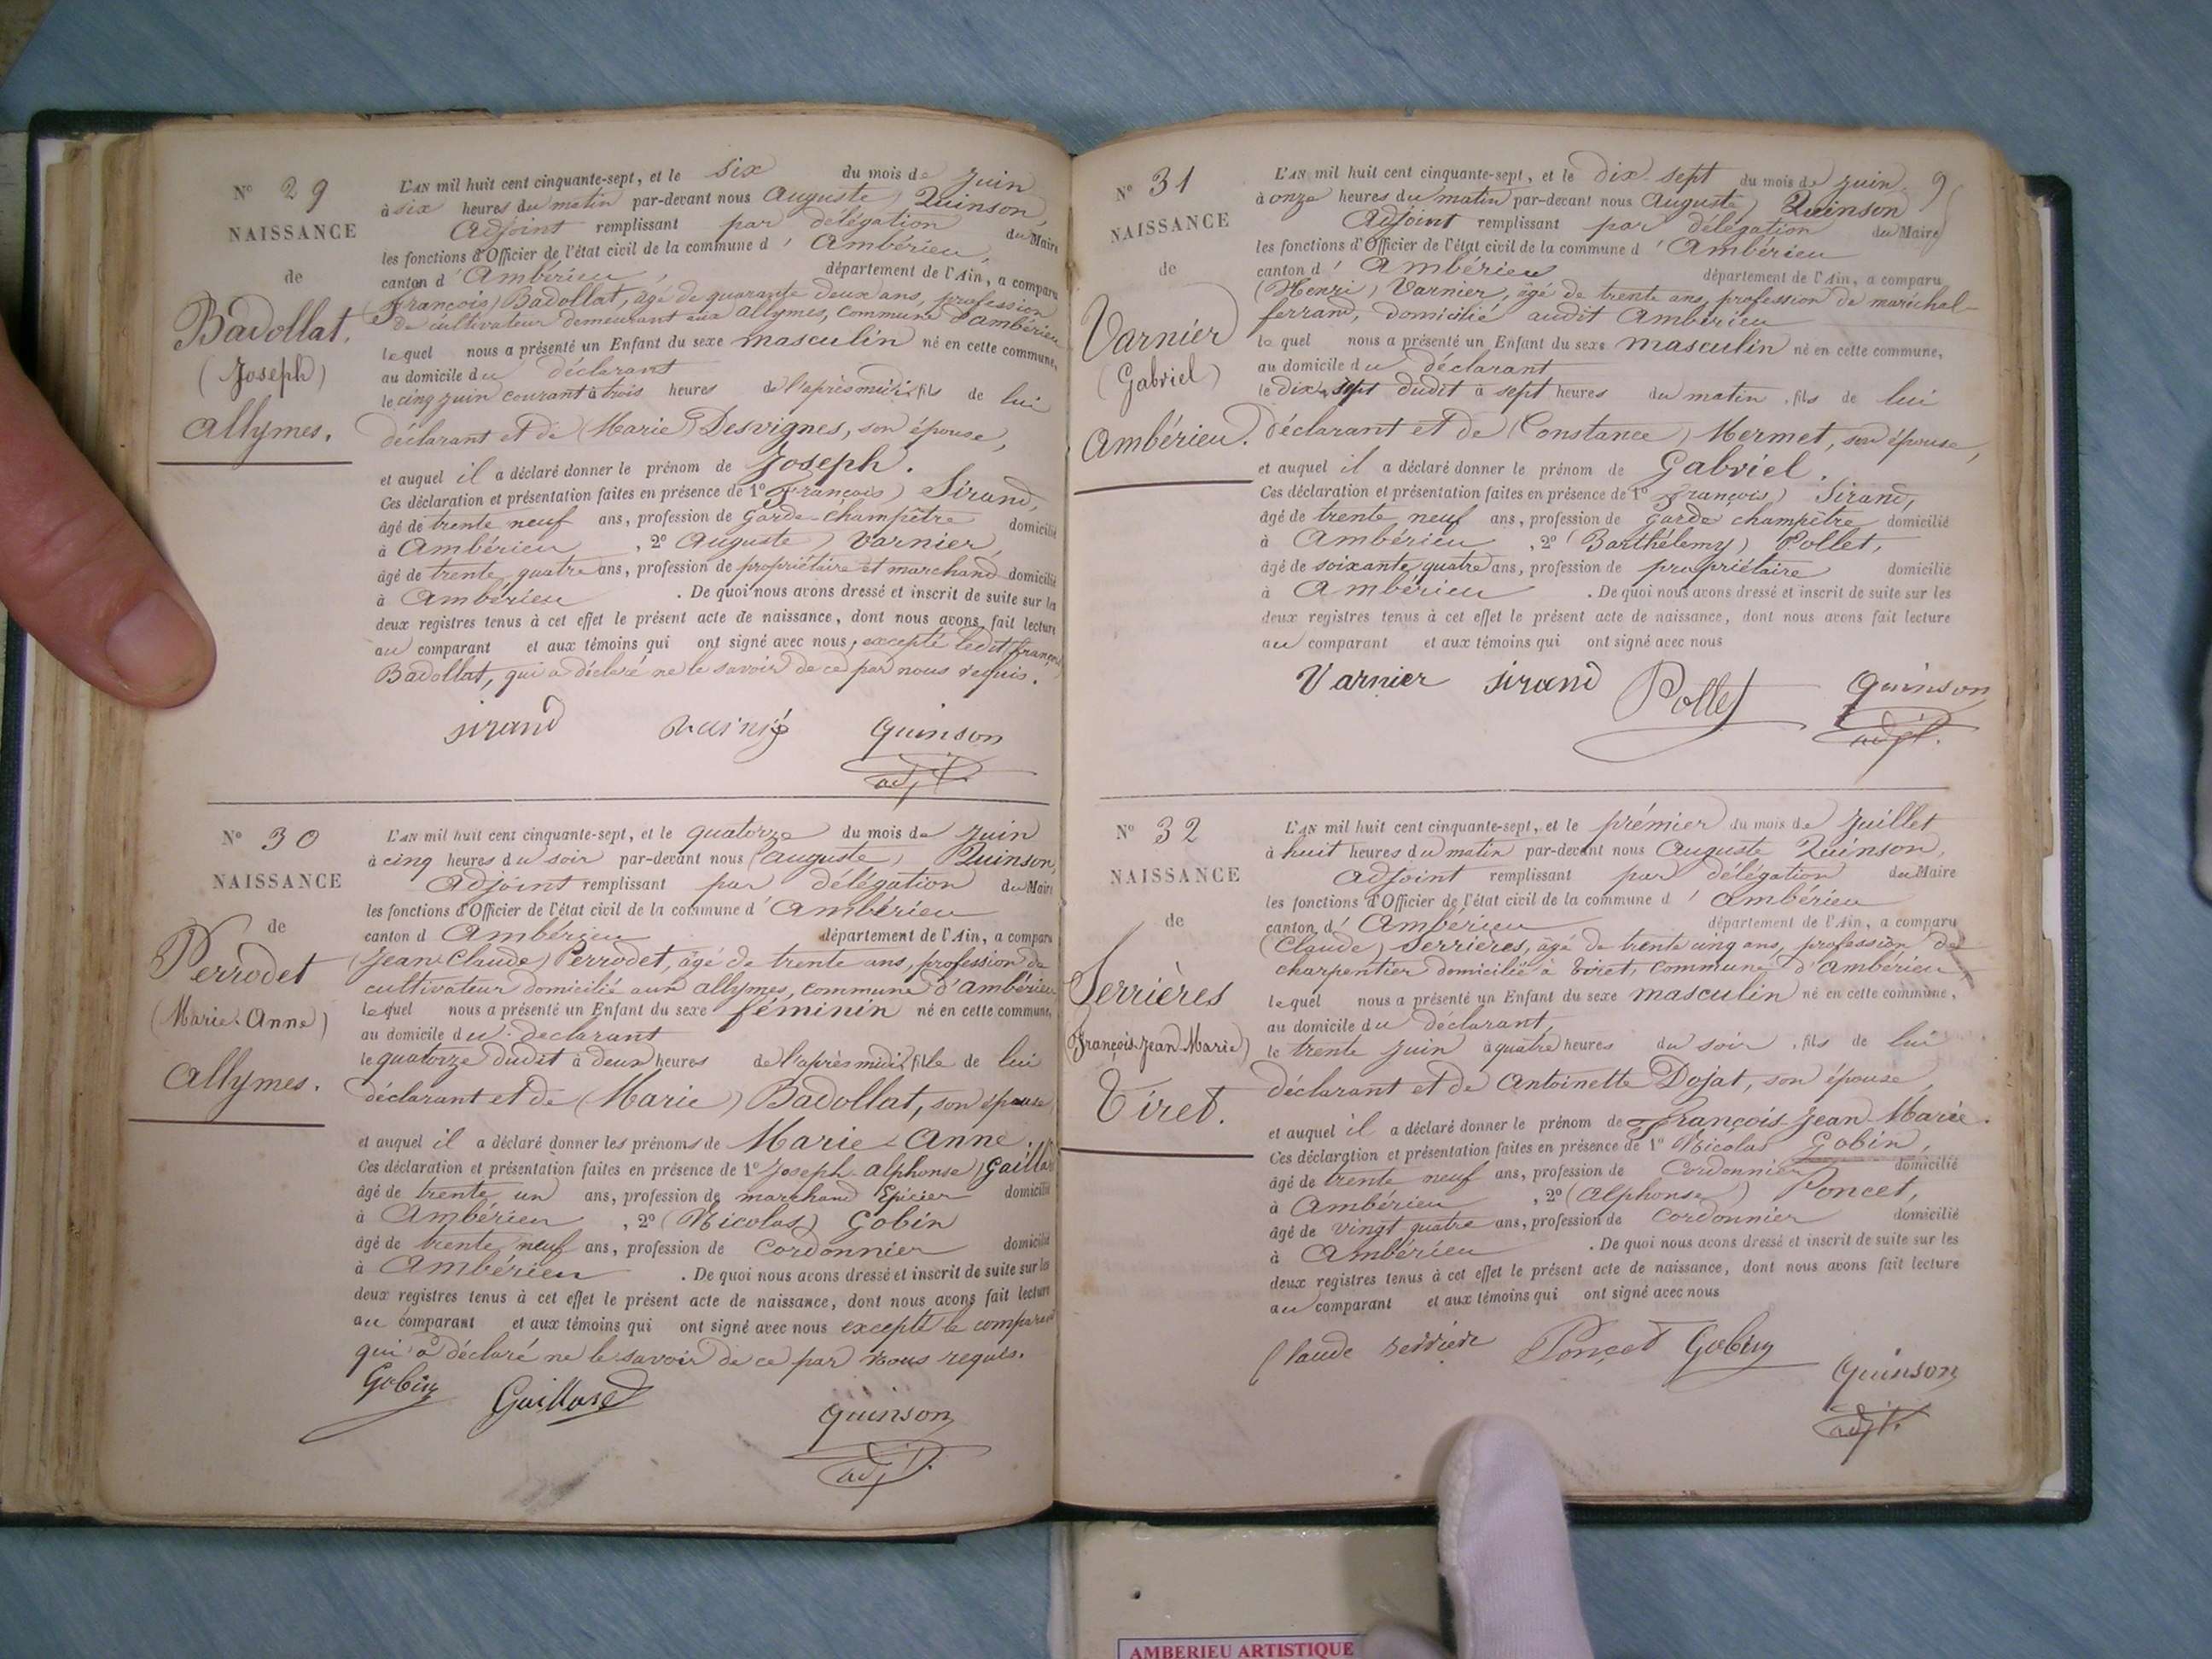 N° 29
NAISSANCE
de
Badollat.
(Joseph)
Allymes.
L'AN mil huit cent cinquante-sept, et le six du mois de Juin
à six heures du matin par-devant nous (Auguste) Quinson,
Adjoint remplissant par délégation du Maire
les fonctions d'Officier de l'état civil de la commune d' Ambérieu,
canton d' Ambérieu, département de l'Ain, a comparu
(François) Badollat, âgé de quarante deux ans, profession
de cultivateur demeurant aux allymes, commune d'ambérieu
lequel nous a présenté un Enfant du sexe masculin né en cette commune,
au domicile du déclarant
le cinq juin courant à trois heures de l'après midi, fils de lui
déclarant et de (Marie) Desvignes, son épouse,
et auquel il a déclaré donner le prénom de Joseph.
Ces déclaration et présentation faites en présence de 1° (François) Sirand,
âgé de trente neuf ans, profession de garde-champêtre domicilié
à Ambérieu, 2° Auguste) Varnier,
âgé de trente quatre ans, profession de propriétaire et marchand domicilié
à Ambérieu. De quoi nous avons dressé et inscrit de suite sur les
deux registres tenus à cet effet le présent acte de naissance, dont nous avons fait lecture
au comparant et aux témoins qui ont signé avec nous, excepté ledit françois
Badollat, qui a déclaré ne le savoir de ce par nous requis.
sirand quinson
adjt.
N° 30
NAISSANCE
de
Perrodet
(Marie-Anne)
Allymes.
L'AN mil huit cent cinquante-sept, et le quatorze du mois de Juin
à cinq heures du soir par-devant nous (Auguste) Quinson,
Adjoint remplissant par délégation du Maire
les fonctions d'Officier de l'état civil de la commune d' Ambérieu
canton d Ambérieu département de l'Ain, a comparu
(Jean-Claude) Perrodet, âgé de trente ans, profession de
cultivateur domicilié aux allymes, commune d'ambérieu
lequel nous a présenté un Enfant du sexe féminin né en cette commune,
au domicile du déclarant
le quatorze dudit à deux heures de l'après midi, fille de lui
déclarant et de (Marie) Badollat, son épouse
et auquel il a déclaré donner les prénoms de Marie-Anne.
Ces déclaration et présentation faites en présence de 1° Joseph-alphonse) Gaillard
âgé de trente un ans, profession de marchand Epicier domicilié
à Ambérieu, 2° (Nicolas) Gobin
âgé de trente neuf ans, profession de Cordonnier domicilié
à Ambérieu. De quoi nous avons dressé et inscrit de suite sur les
deux registres tenus à cet effet le présent acte de naissance, dont nous avons fait lecture
au comparant et aux témoins qui ont signé avec nous excepté le comparant
qui a déclaré ne le savoir de ce par nous requis.
Gobin Gaillard quinson
adjt.
9
N° 31
NAISSANCE
de
Varnier
(Gabriel)
Ambérieu.
L'AN mil huit cent cinquante-sept, et le dix sept du mois de juin
à onze heures du matin par-devant nous Auguste) Quinson
Adjoint remplissant par délégation du Maire
les fonctions d'Officier de l'état civil de la commune d' Ambérieu
canton d' Ambérieu département de l'Ain, a comparu
(Henri) Varnier, âgé de trente ans, profession de maréchal-
ferrand, domicilié audit Ambérieu
lequel nous a présenté un Enfant du sexe masculin né en cette commune,
au domicile du déclarant
le dix sept dudit à sept heures du matin, fils de lui
déclarant et de (Constance) Mermet, son épouse,
et auquel il a déclaré donner le prénom de Gabriel.
Ces déclaration et présentation faites en présence de 1° François) Sirand,
âgé de trente neuf ans, profession de garde champêtre domicilié
à Ambérieu, 2° (Barthélemy) Pollet,
âgé de soixante quatre ans, profession de propriétaire domicilié
à Ambérieu. De quoi nous avons dressé et inscrit de suite sur les
deux registres tenus à cet effet le présent acte de naissance, dont nous avons fait lecture
au comparant et aux témoins qui ont signé avec nous
Varnier sirand Pollet quinson
adjt.
N° 32
NAISSANCE
de
Serrières
(François-Jean-Marie)
Tiret.
L'AN mil huit cent cinquante-sept, et le prémier du mois de Juillet
à huit heures du matin par-devant nous Auguste Quinson,
Adjoint remplissant par délégation du Maire
les fonctions d'Officier de l'état civil de la commune d' Ambérieu
canton d' Ambérieu département de l'Ain, a comparu
(Claude) Serrières, âgé de trente cinq ans, profession de
charpentier domicilié à Tiret, commune d'Ambérieu,
lequel nous a présenté un Enfant du sexe masculin né en cette commune,
au domicile du déclarant,
le trente juin à quatre heures du soir, fils de lui
déclarant et de Antoinette Dojat, son épouse,
et auquel il a déclaré donner le prénom de François-Jean-Marie.
Ces déclaration et présentation faites en présence de 1° Nicolas Gobin,
âgé de trente neuf ans, profession de Cordonnier domicilié
à Ambérieu, 2° (Alphonse) Poncet,
âgé de vingt quatre ans, profession de cordonnier domicilié
à Ambérieu. De quoi nous avons dressé et inscrit de suite sur les
deux registres tenus à cet effet le présent acte de naissance, dont nous avons fait lecture
au comparant et aux témoins qui ont signé avec nous
Claude serrière Poncet Gobin quinson
adjt.
AMBERIEU ARTISTIQUE